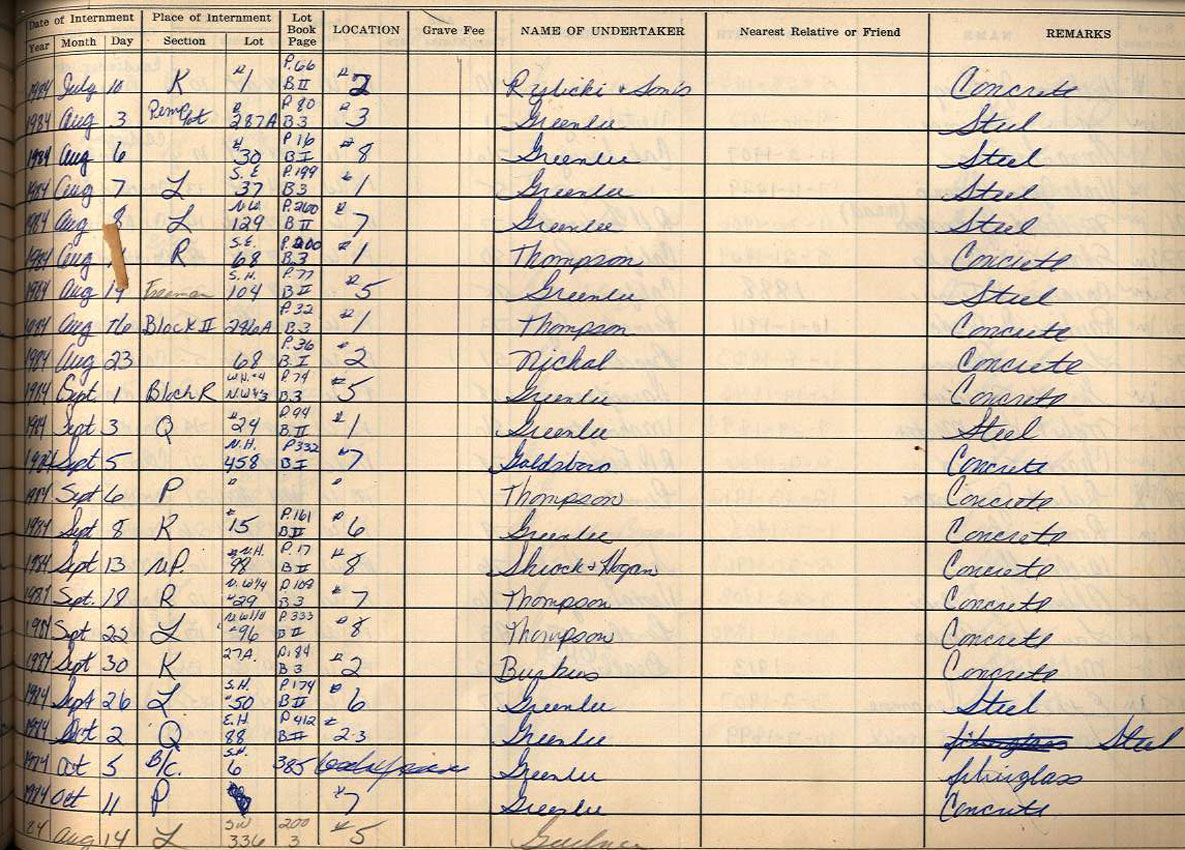 Date of Internment Place of Internment Lot Book Page LOCATION Grave Fee NAME OF UNDERTAKER Nearest Relative or Friend REMARKS
Year Month Day Section Lot
1984 July 10 K 1 P.66 B II 2 Rybicki & Sons Concrete
1984 Aug 3 287A P 80 B.3 3 Greenlee Steel
1984 Aug 6 30 P.16 B I 8 Greenlee Steel
1984 Aug 7 L S.E 37 P.199 B.3 1 Greenlee Steel
1984 Aug 8 L 129 P.260 B II 7 Greenlee Steel
1984 Aug R S.E. 68 P.200 B.3 1 Thompson Concrete
1984 Aug 14 Freeman S.H. 104 P.77 B II 5 Greenlee Steel
1984 Aug 16 Block II 286A P.32 B.3 1 Thompson Concrete
1984 Aug 23 68 P.36 B.I 2 Nichal Concrete
1984 Sept 1 Block R P.74 B.3 5 Greenlee Concrete
1984 Sept 3 Q 24 P.44 B II 1 Greenlee Steel
1984 Sept 5 N.H. 458 P.332 B I 7 Goldsboro Concrete
1984 Sept 6 P " " Thompson Concrete
1984 Sept 8 K 15 P.161 B II 6 Greenlee Concrete
1984 Sept 13 N.P. N.H. 98 P.17 B II 8 Shrock & Hogan Concrete
1984 Sept. 18 R N.W 1/4 #29 P.109 B 3 7 Thompson Concrete
1984 Sept L #96 P.333 B II 8 Thompson Concrete
1984 Sept 30 K 27A. P.84 B 3 2 Concrete
1984 Sept 26 L S.H. #50 P.174 B II 6 Greenlee Steel
1984 Oct 2 Q E.H. 88 P 412 B II 2-3 Greenlee fiberglass Steel
1984 Oct 5 B/C. S.H. 6 385 Greenlee fiberglass
1984 Oct 11 P #7 Greenlee Concrete
84 Aug 14 L SW 336 200 3 #5